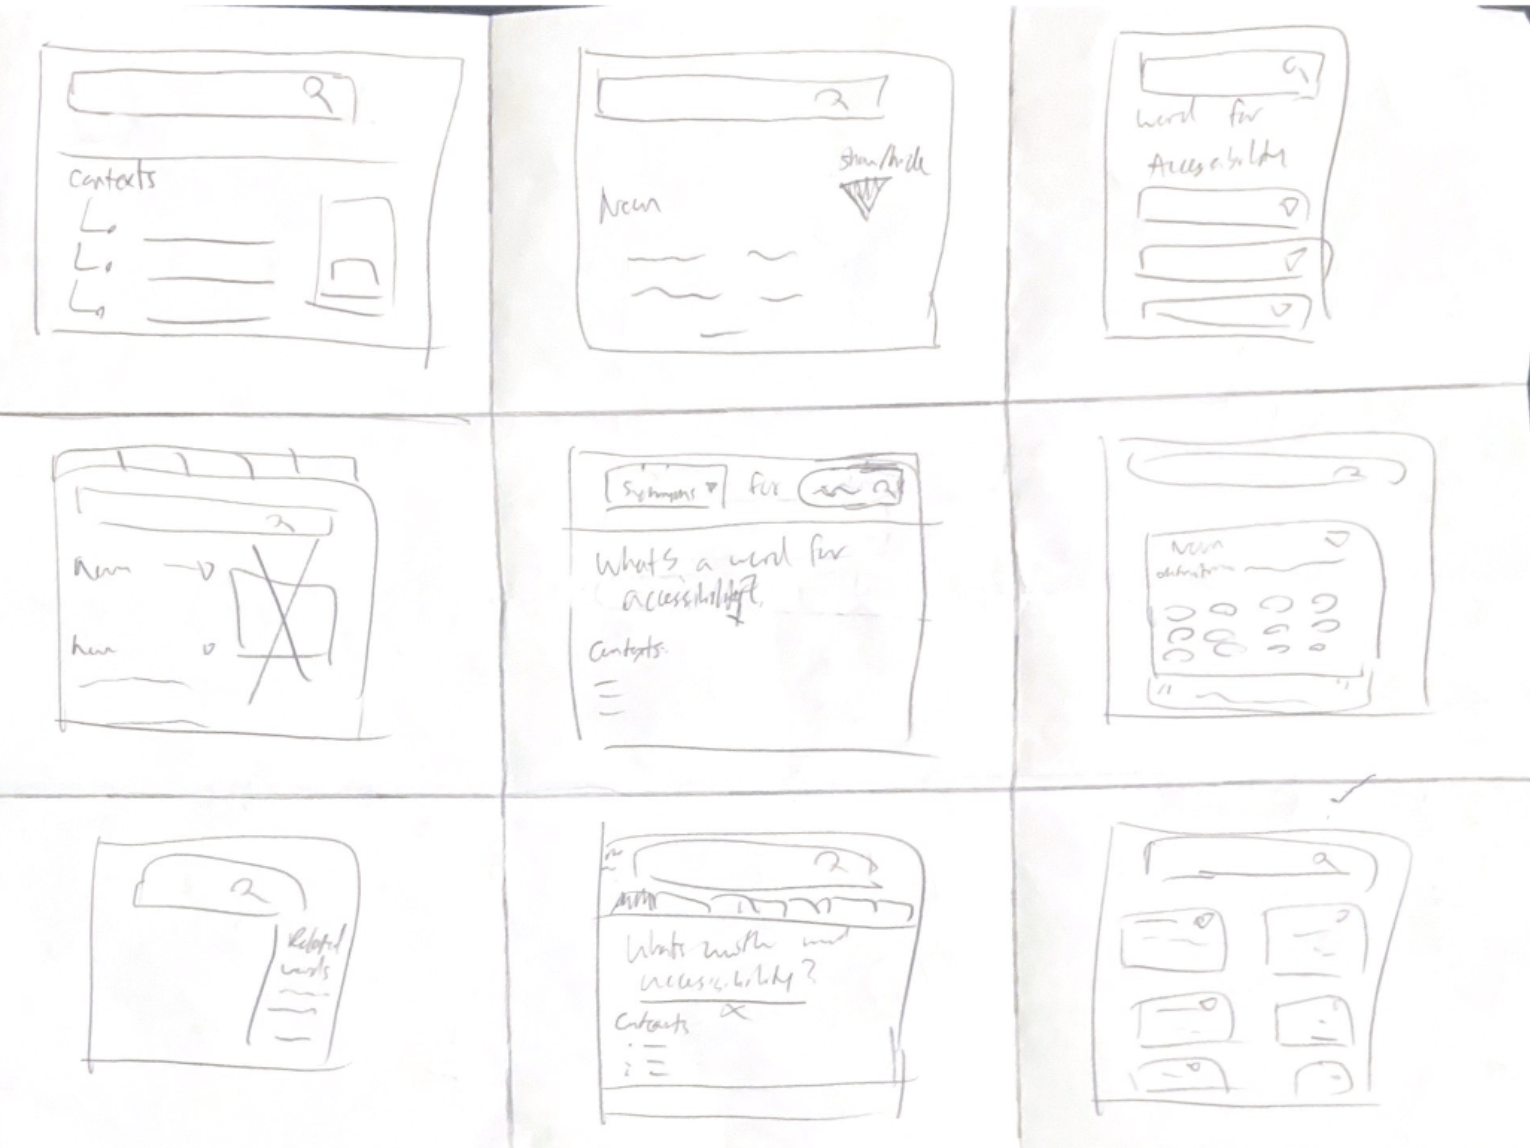 Contexts
show/hide
Noun
word for
Accessibility
Noun
Noun
Synonyms for
What's a word for
accessibility?
Contexts:
Noun
definition
" "
Related
words
What's another word
accessibility?
Contexts